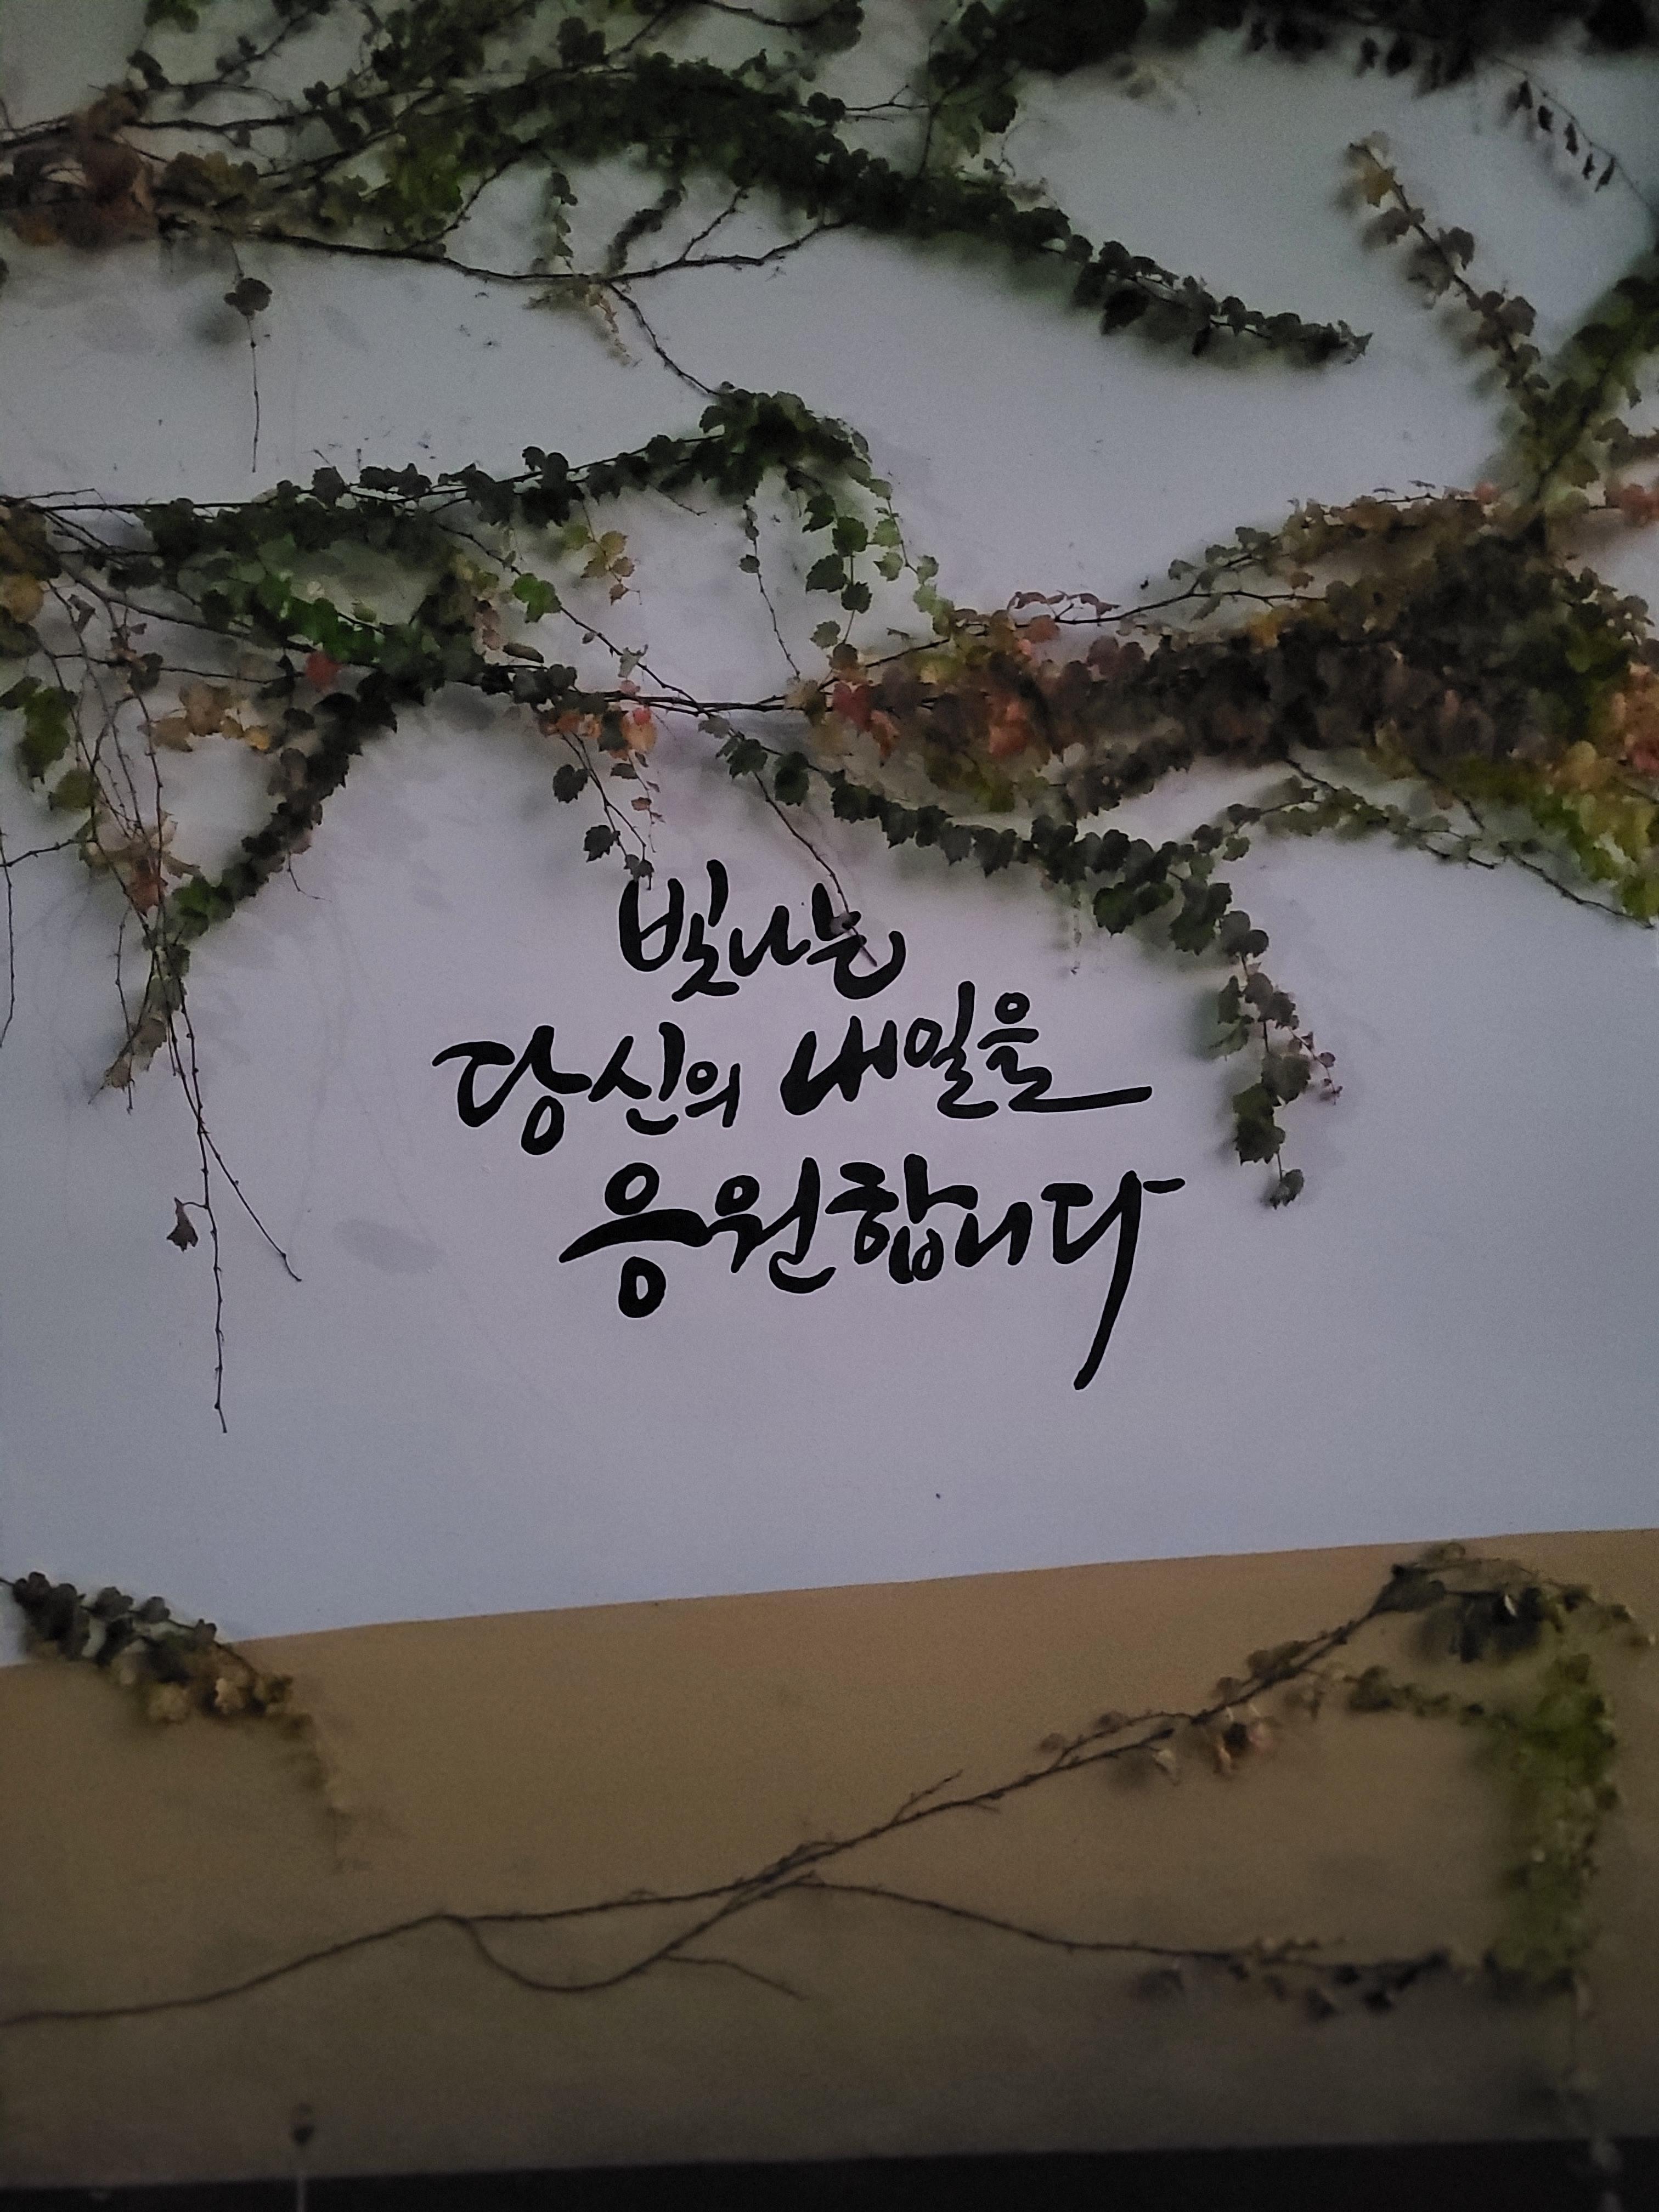 빛나는
당신의 내일을
응원합니다